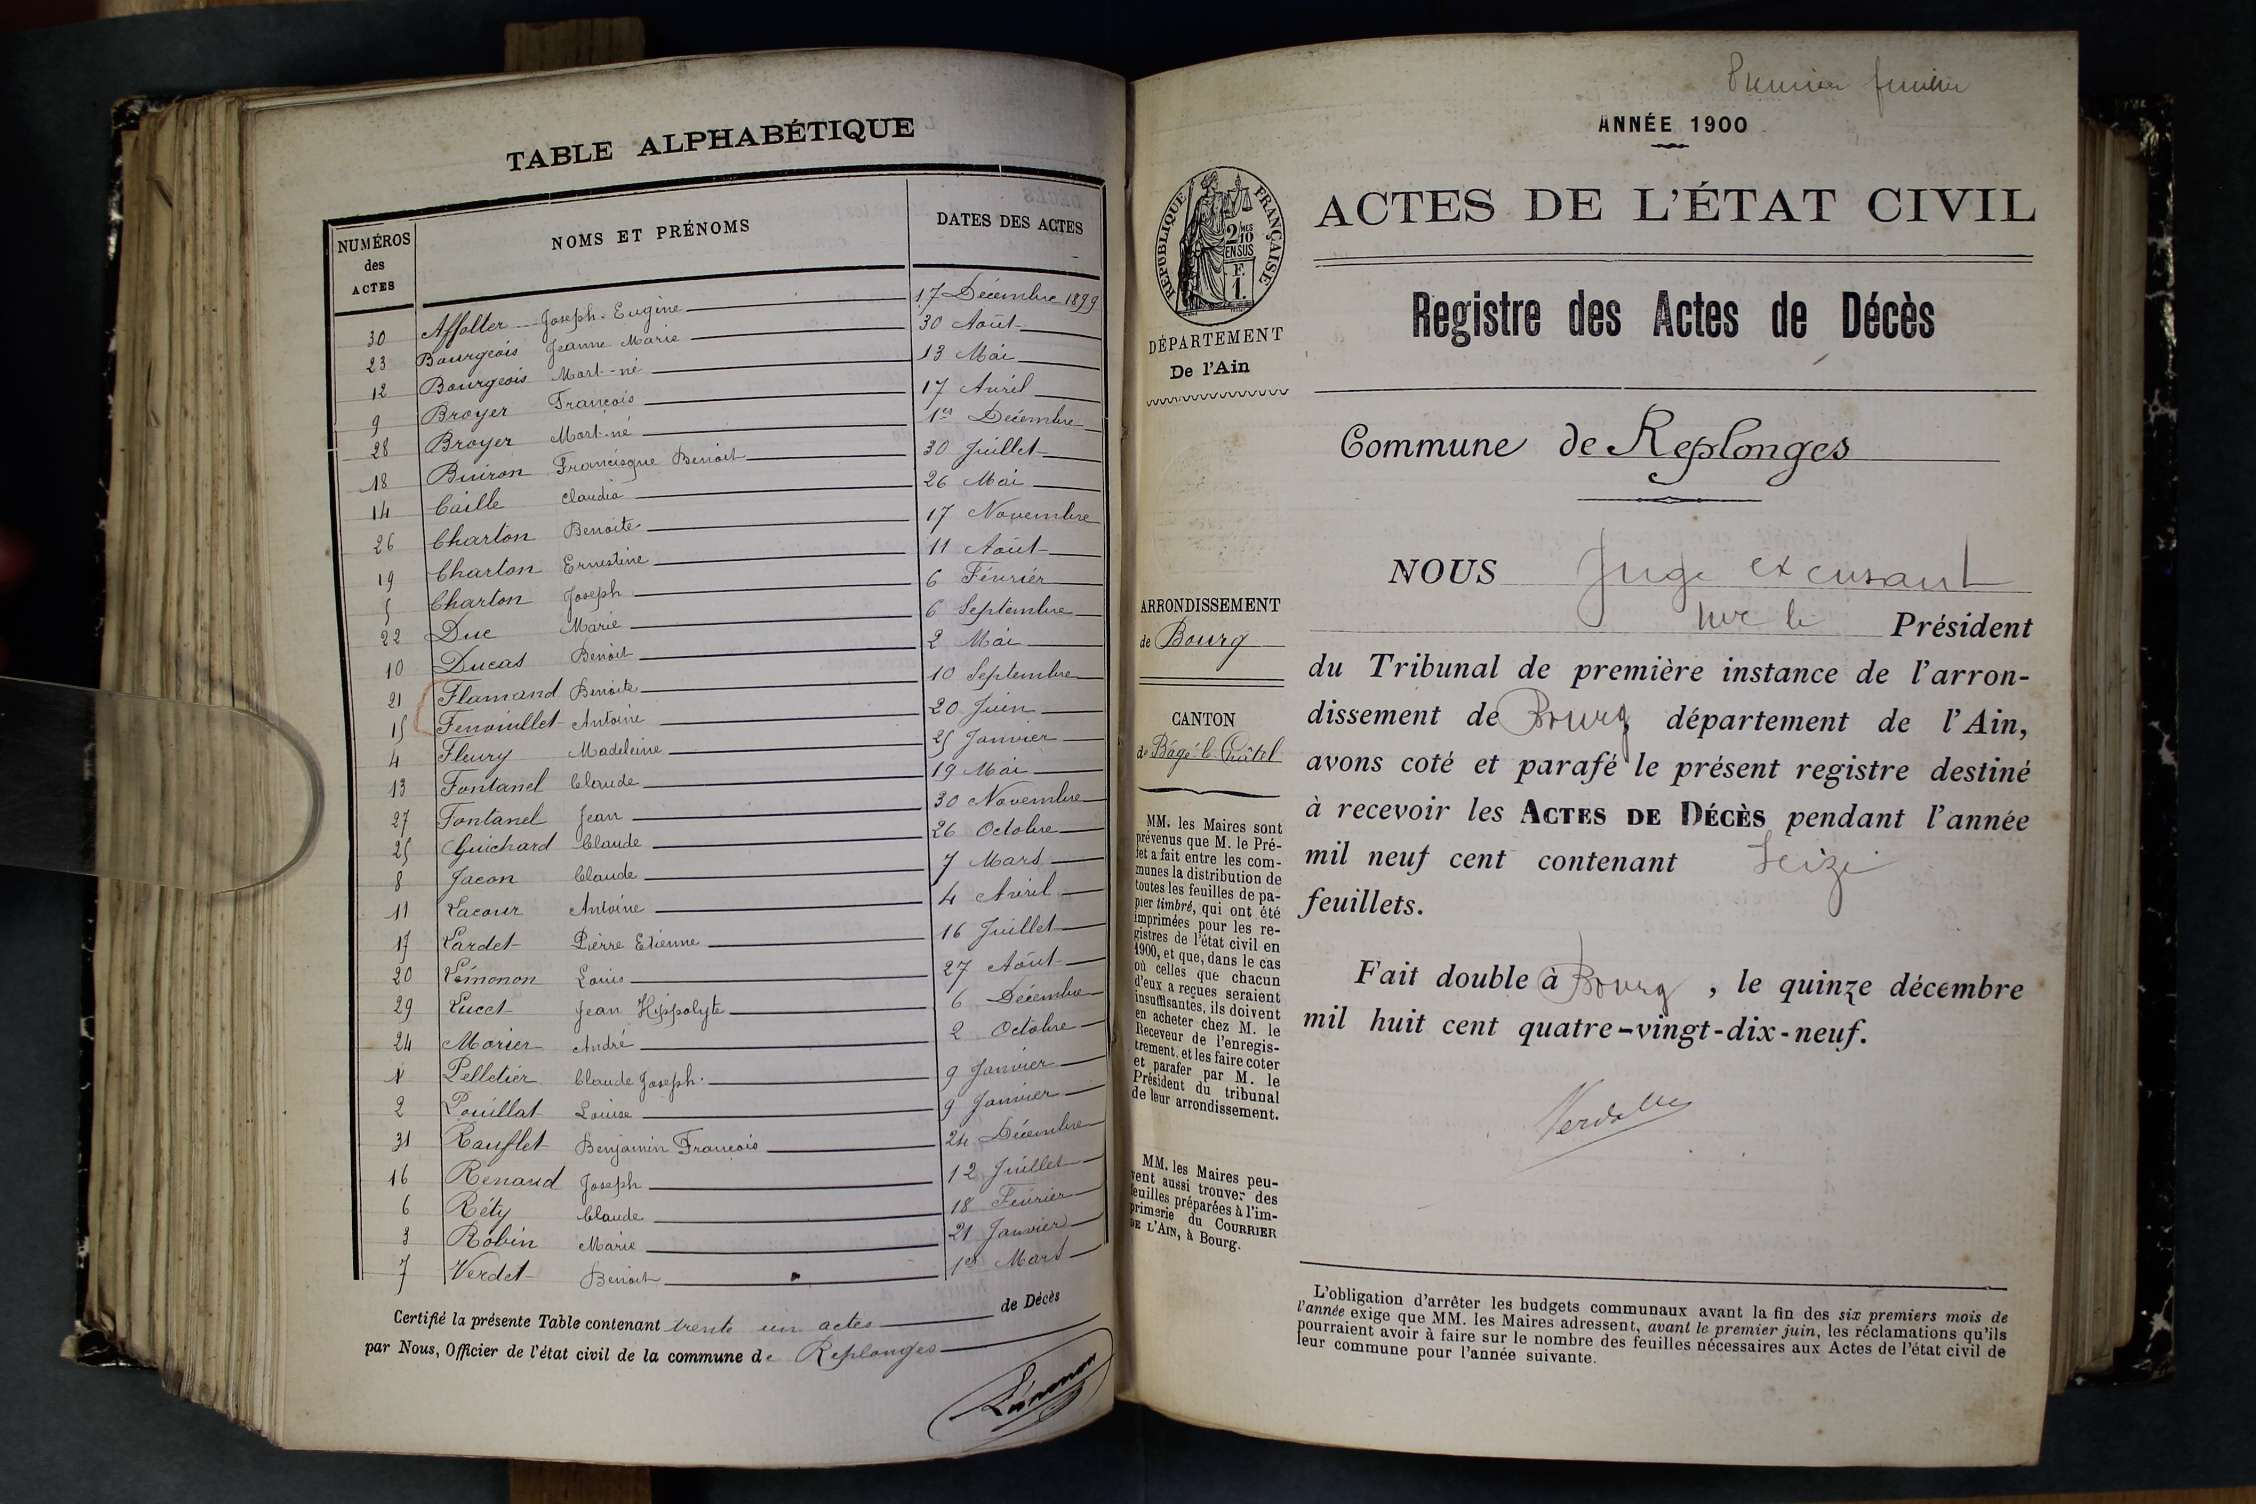 TABLE ALPHABÉTIQUE
NUMÉROS des ACTES NOMS ET PRÉNOMS DATES DES ACTES
30 Affolter Joseph-Eugène 17 Décembre 1899
23 Bourgeois Jeanne Marie 30 Août
12 Bourgeois Mort-né 13 Mai
9 Broyer François 17 Avril
28 Broyer Mort-né 1er Décembre
18 Buiron Francisque Benoit 30 Juillet
14 Caille Claudia 26 Mai
26 Charton Benoite 17 Novembre
19 Charton Ernestine 11 Août
5 Charton Joseph 6 Février
22 Duc Marie 6 Septembre
10 Ducas Benoit 2 Mai
21 Flamand Benoite 10 Septembre
15 Fenouillet Antoine 20 Juin
4 Fleury Madeleine 25 Janvier
13 Fontanel Claude 19 Mai
27 Fontanel Jean 30 Novembre
25 Guichard Claude 26 Octobre
8 Jacon Claude 7 Mars
11 Lacour Antoine 4 Avril
17 Lardet Pierre Etienne 16 Juillet
20 Lémonon Louis 27 Août
29 Lucet Jean Hippolyte 6 Décembre
24 Morier André 2 Octobre
1 Pelletier Claude Joseph. 9 Janvier
2 Pouillat Louise 9 Janvier
31 Rauflet Benjamin François 24 Décembre
16 Renaud Joseph 12 Juillet
6 Réty Claude 18 Février
3 Robin Marie 21 Janvier
7 Verdet Benoit 1er Mars
Certifié la présente Table contenant trente un actes de Décès
par Nous, Officier de l'état civil de la commune de Replonges
Lémonon
Premier
ANNÉE 1900
RÉPUBLIQUE FRANÇAISE
2 MES
10
EN SUS
F.
1.
DÉPARTEMENT
De l'Ain
ARRONDISSEMENT
de Bourg
CANTON
de Bâgé-le-Châtel
MM. les Maires sont
prévenus que M. le Pré-
fet a fait entre les com-
munes la distribution de
toutes les feuilles de pa-
pier timbré, qui ont été
imprimées pour les re-
gistres de l'état civil en
1900, et que, dans le cas
où celles que chacun
d'eux a reçues seraient
insuffisantes, ils doivent
en acheter chez M. le
Receveur de l'enregis-
trement, et les faire coter
et parafer par M. le
Président du tribunal
de leur arrondissement.
MM. les Maires peu-
vent aussi trouver des
feuilles préparées à l'im-
primerie du COURRIER
DE L'AIN, à Bourg.
ACTES DE L'ÉTAT CIVIL
Registre des Actes de Décès
Commune de Replonges
NOUS Juge
Président
du Tribunal de première instance de l'arron-
dissement de Bourg, département de l'Ain,
avons coté et parafé le présent registre destiné
à recevoir les ACTES DE DÉCÈS pendant l'année
mil neuf cent contenant Seize
feuillets.
Fait double à Bourg, le quinze décembre
mil huit cent quatre-vingt-dix-neuf.
L'obligation d'arrêter les budgets communaux avant la fin des six premiers mois de
l'année exige que MM. les Maires adressent, avant le premier juin, les réclamations qu'ils
pourraient avoir à faire sur le nombre des feuilles nécessaires aux Actes de l'état civil de
leur commune pour l'année suivante.